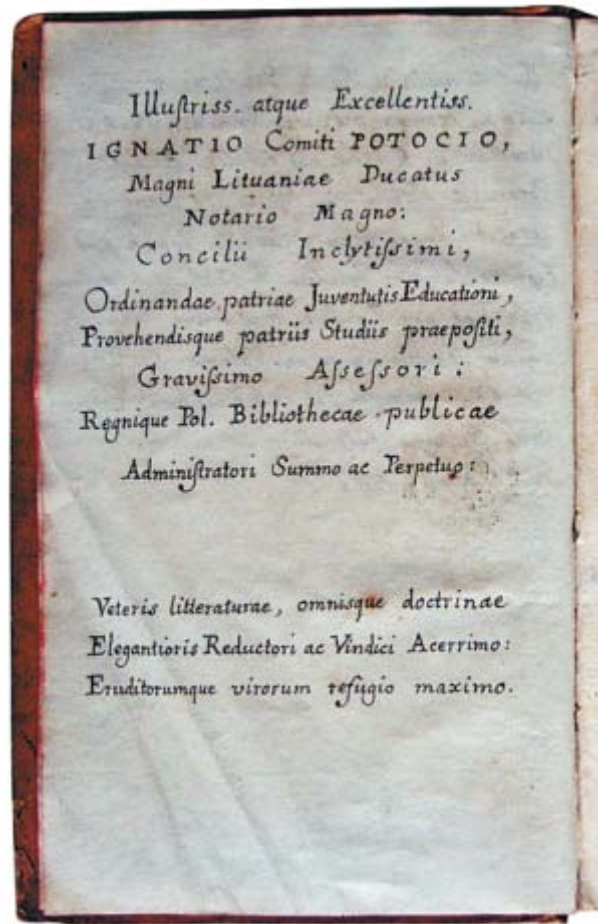 Illuſtriss. atque Excellentiss.
IGNATIO Comiti POTOCIO,
Magni Lituaniae Ducatus
Notario Magno:
Concilii Inclytiſsimi,
Ordinandae patriae Juventutis Educationi,
Provehendisque patriis Studiis praepoſiti,
Graviſsimo Aſseſsori:
Regnique Pol. Bibliothecae publicae
Adminiſtratori Summo ac Perpetuo:
Veteris litteraturae, omnisque doctrinae
Elegantioris Reductori ac Vindici Acerrimo:
Eruditorumque virorum refugio maximo.